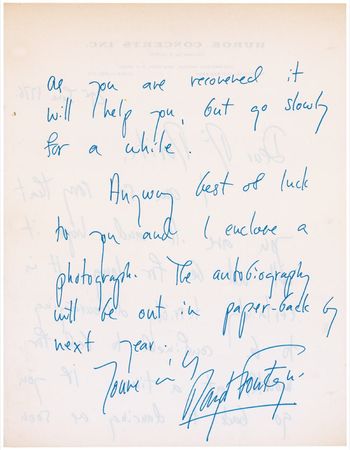 as you are recovered it
will help you, but go slowly
for a while.
Anyway best of luck
to you and I enclose a
photograph. The autobiography
will be out in paper-back by
next year.
Margot Fonteyn